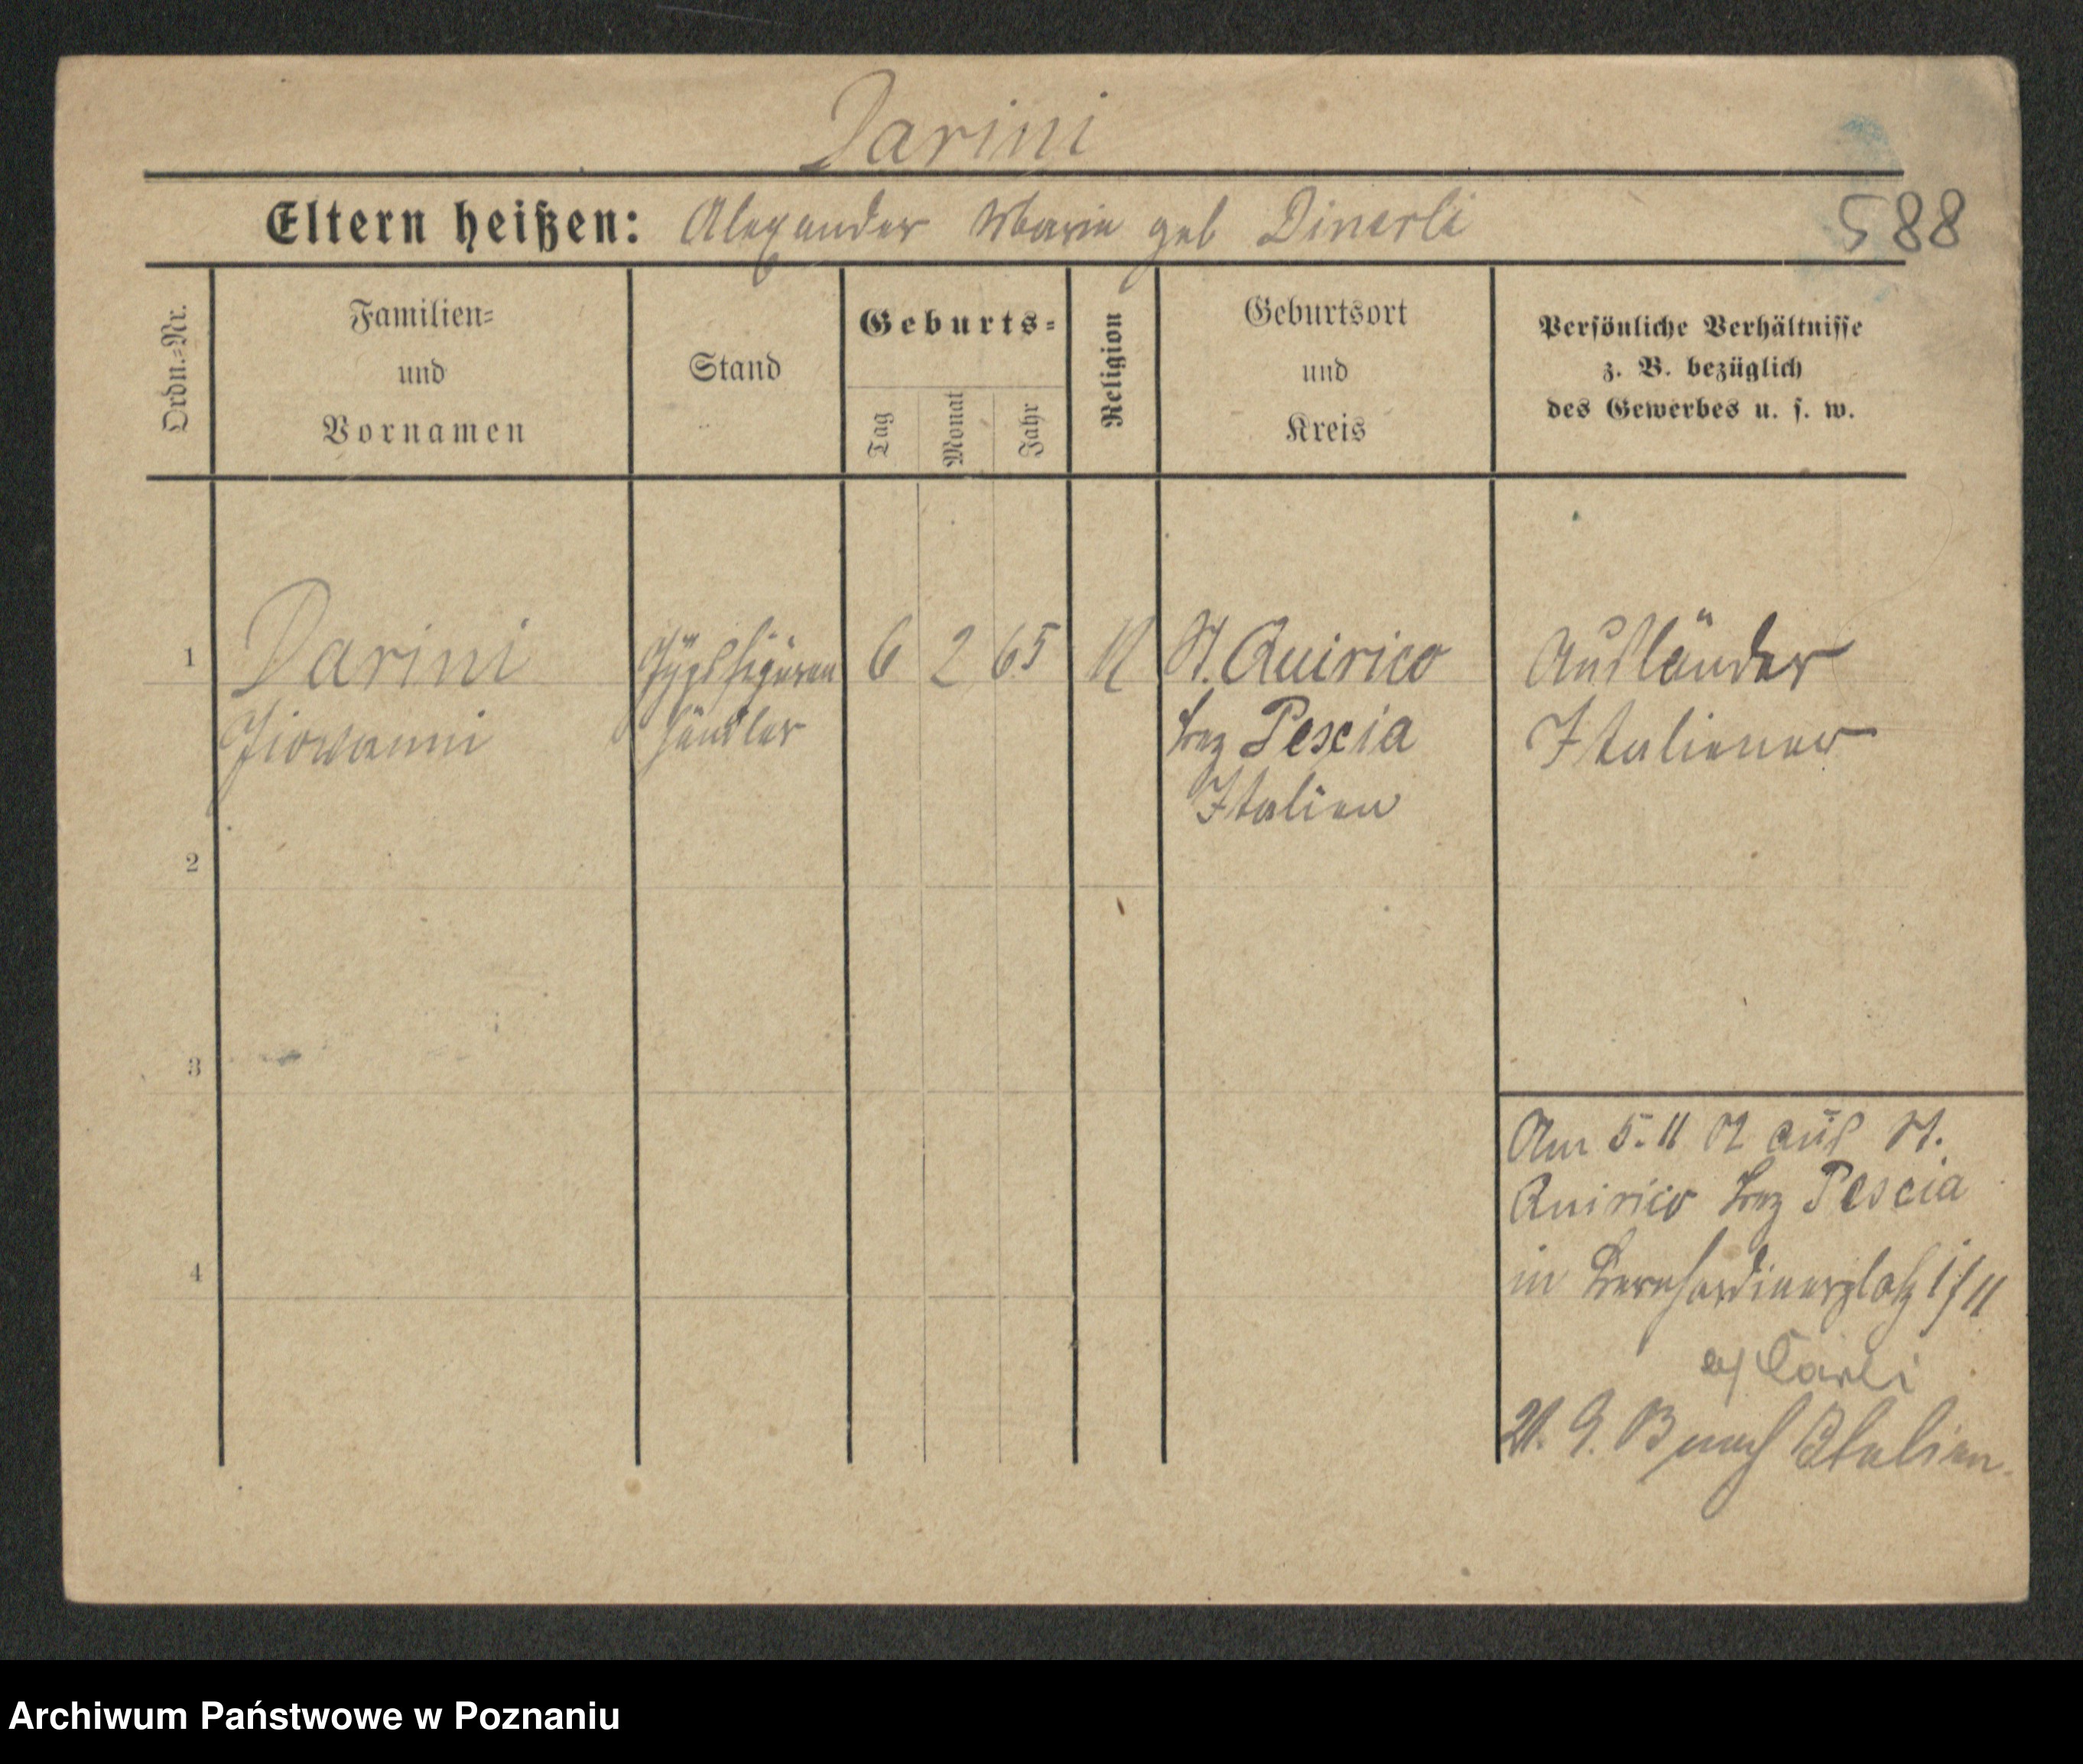 Darini
Eltern heißen: Alexander Marie geb Dinerli
588
Ordn.=Nr.
Familien=
und
Vornamen
Stand
Geburts=
Tag
Monat
Jahr
Religion
Geburtsort
und
Kreis
Persönliche Verhältnisse
z. B. bezüglich
des Gewerbes u. s. w.
1 Darini Gypsfiguren 6 2 65 K St. Quirico Ausländer
Giovanni händler Bez Pescia Italiener
Italien
2
3
4
Am 5. 11 02 aus St.
Quirico Bez Pescia
in Bernhardinerplatz 1/11
b/ Carli
21. 9. 03 nach Italien.
Archiwum Państwowe w Poznaniu